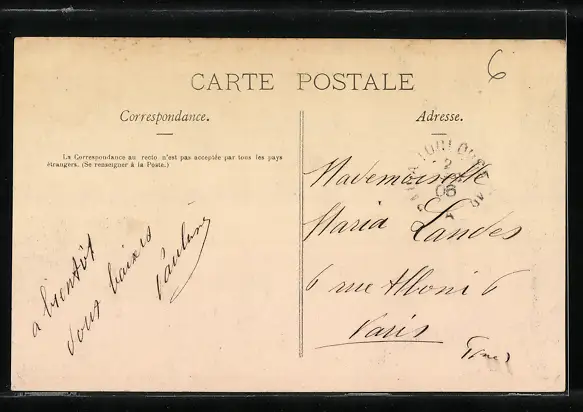 6
CARTE POSTALE
Correspondance.
Adresse.
La Correspondance au recto n'est pas acceptée par tous les pays
étrangers. (Se renseigner à la Poste.)
a bientôt
doux baisers
Pauline
TOULOUSE
2
08
Mademoiselle
Maria Landes
6 rue Alboni 6
Paris